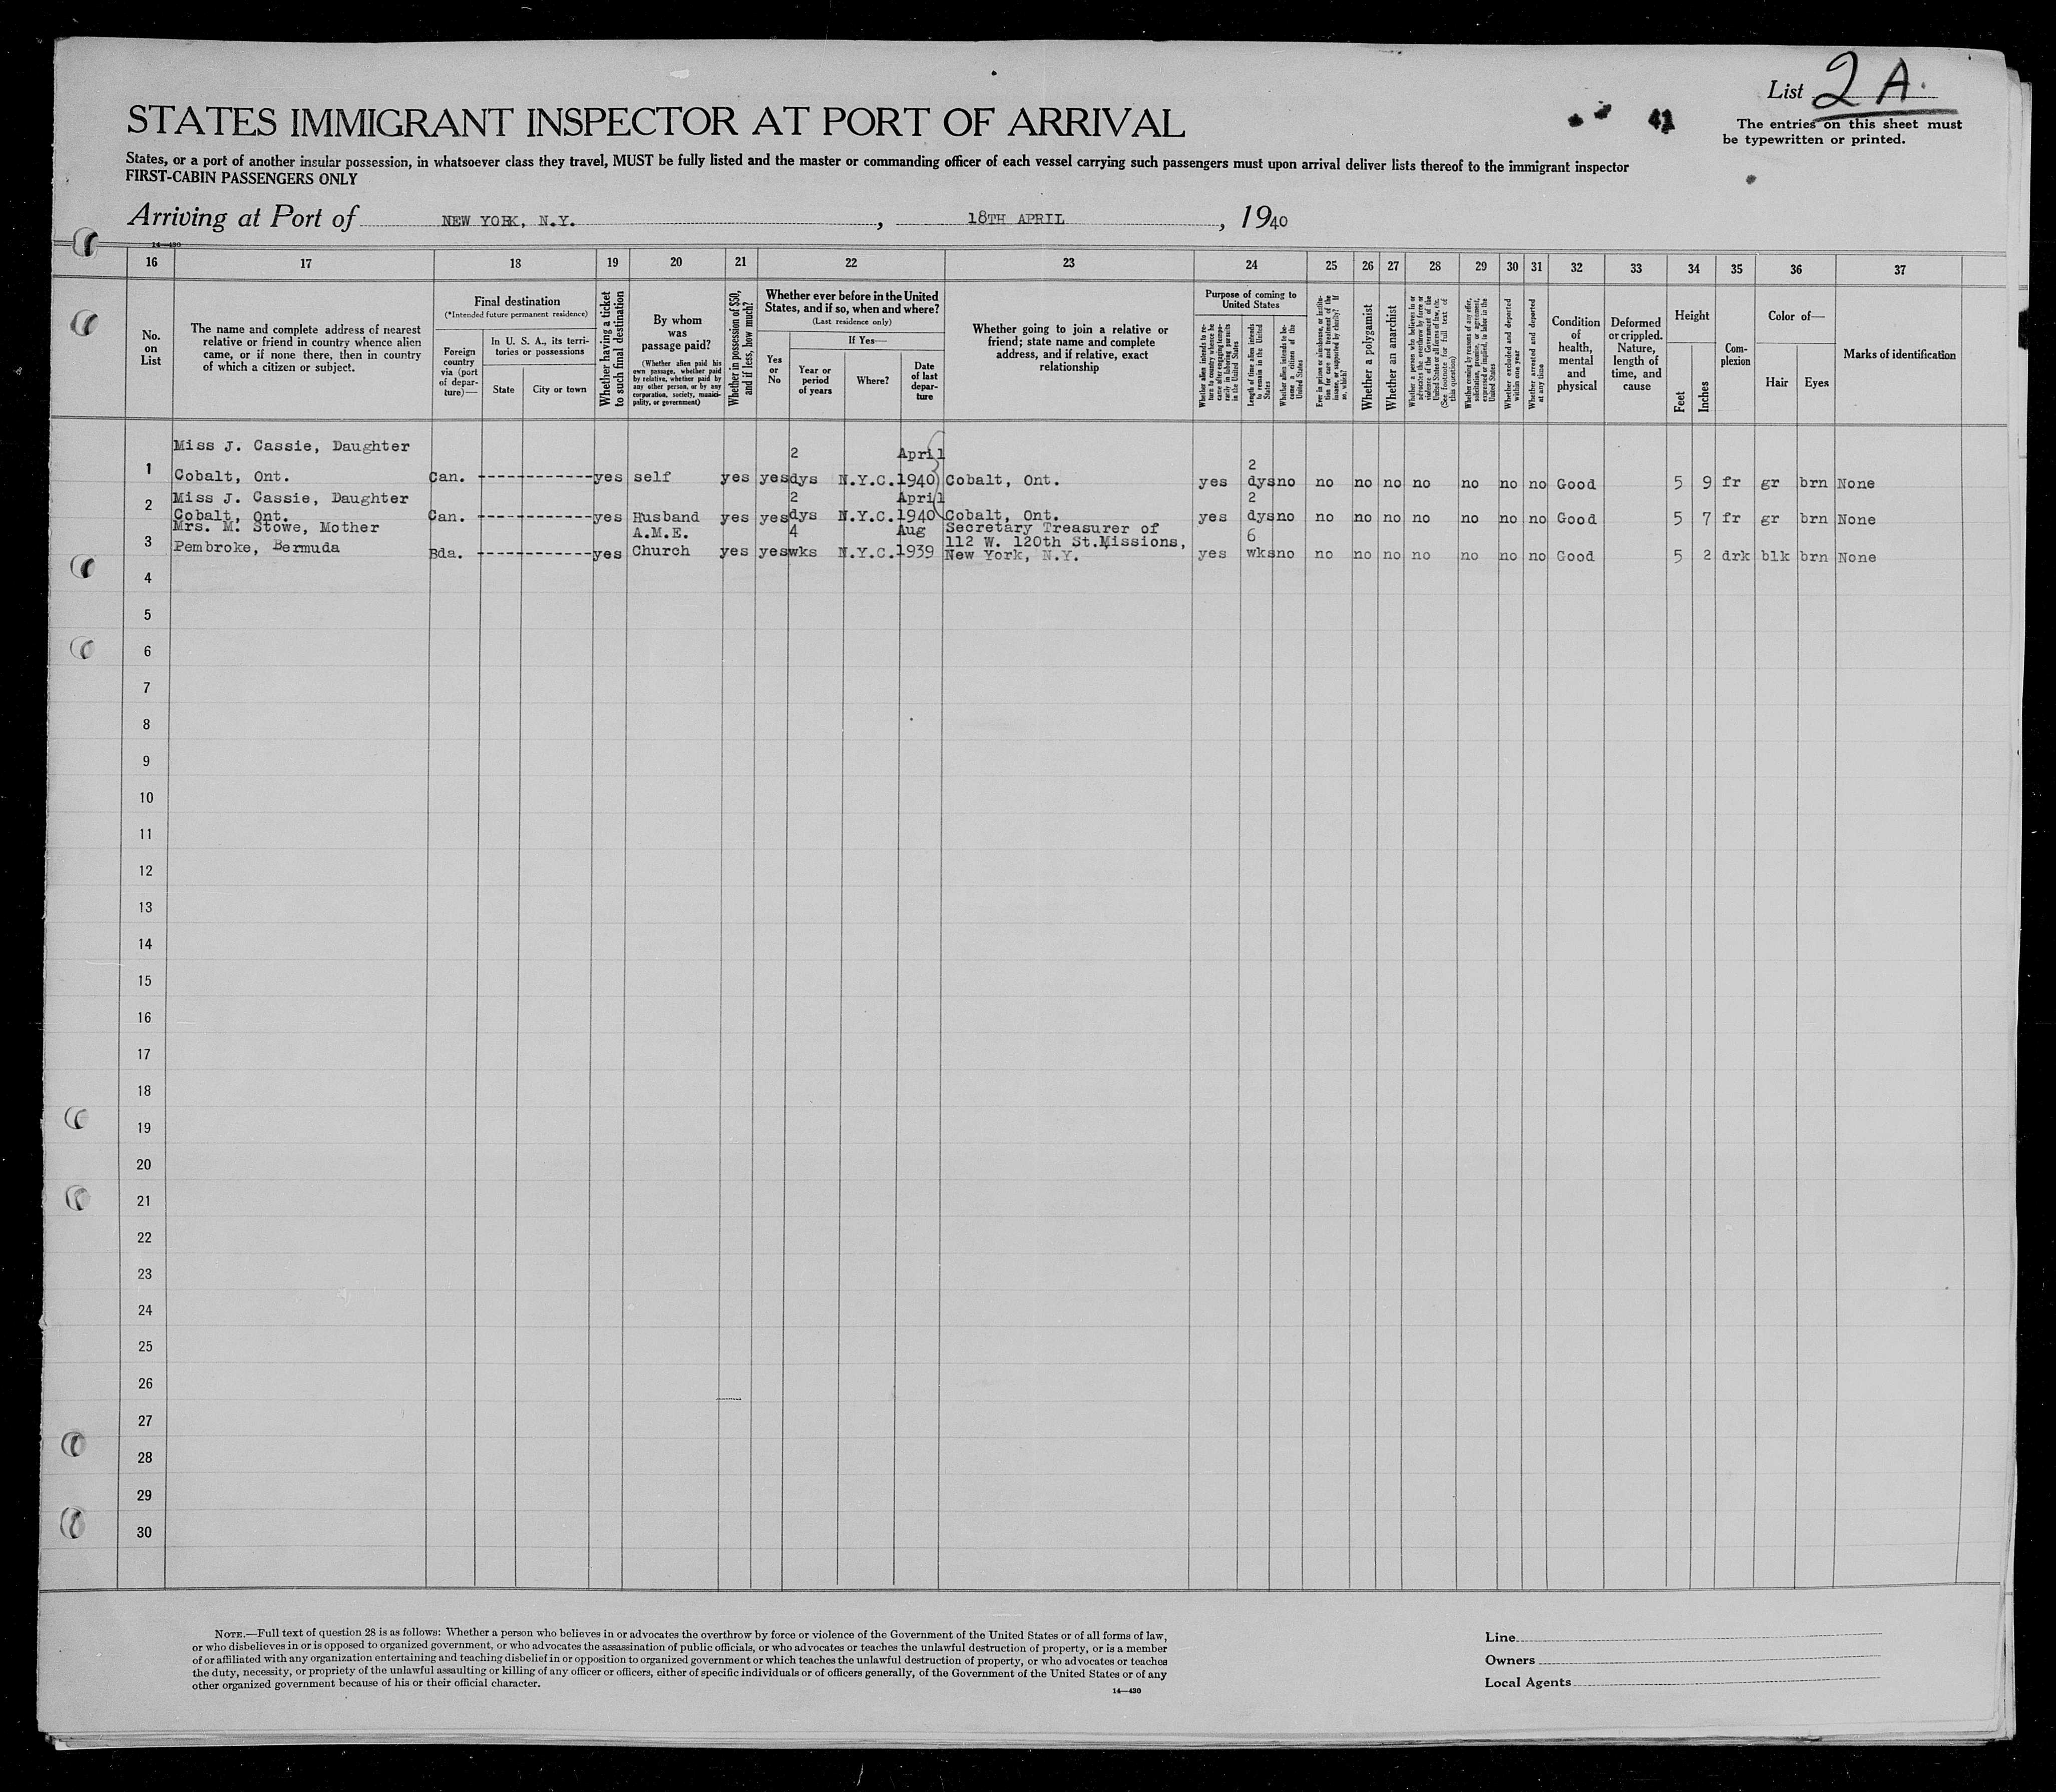 List 2A.
The entries on this sheet must
be typewritten or printed.
STATES IMMIGRANT INSPECTOR AT PORT OF ARRIVAL
States, or a port of another insular possession, in whatsoever class they travel, MUST be fully listed and the master or commanding officer of each vessel carrying such passengers must upon arrival deliver lists thereof to the immigrant inspector
FIRST-CABIN PASSENGERS ONLY
Arriving at Port of NEW YORK, N.Y. , 18TH APRIL , 1940
14—430
16 17 18 19 20 21 22 23 24 25 26 27 28 29 30 31 32 33 34 35 36 37
No.
on
List
The name and complete address of nearest
relative or friend in country whence alien
came, or if none there, then in country
of which a citizen or subject.
Final destination
(*Intended future permanent residence)
Foreign
country
via (port
of depar-
ture)—
In U. S. A., its terri-
tories or possessions
State City or town
Whether having a ticket
to such final destination
By whom
was
passage paid?
(Whether alien paid his
own passage, whether paid
by relative, whether paid by
any other person, or by any
corporation, society, munici-
pality, or government)
Whether in possession of $50,
and if less, how much?
Whether ever before in the United
States, and if so, when and where?
(Last residence only)
Yes
or
No
If Yes—
Year or
period
of years
Where?
Date
of last
depar-
ture
Whether going to join a relative or
friend; state name and complete
address, and if relative, exact
relationship
Purpose of coming to
United States
Whether alien intends to re-
turn to country whence he
came after engaging tempo-
rarily in laboring pursuits
in the United States
Length of time alien intends
to remain in the United
States
Whether alien intends to be-
come a citizen of the
United States
Ever in prison or almshouse, or institu-
tion for care and treatment of the
insane, or supported by charity? If
so, which?
Whether a polygamist
Whether an anarchist
Whether a person who believes in or
advocates the overthrow by force or
violence of the Government of the
United States or all forms of law, etc.
(See footnote for full text of
this question)
Whether coming by reasons of any offer,
solicitation, promise, or agreement,
expressed or implied, to labor in the
United States
Whether excluded and deported
within one year
Whether arrested and deported
at any time
Condition
of
health,
mental
and
physical
Deformed
or crippled.
Nature,
length of
time, and
cause
Height
Feet
Inches
Com-
plexion
Color of—
Hair Eyes
Marks of identification
Miss J. Cassie, Daughter 2 April 2
1 Cobalt, Ont. Can. yes self yes yes dys N.Y.C. 1940 Cobalt, Ont. yes dys no no no no no no no no Good 5 9 fr gr brn None
Miss J. Cassie, Daughter 2 April 2
2 Cobalt, Ont. Can. yes Husband yes yes dys N.Y.C. 1940 Cobalt, Ont. yes dys no no no no no no no no Good 5 7 fr gr brn None
Mrs. M. Stowe, Mother A.M.E. 4 Aug Secretary Treasurer of
112 W. 120th St.Missions, 6
3 Pembroke, Bermuda Bda. yes Church yes yes wks N.Y.C. 1939 New York, N.Y. yes wks no no no no no no no no Good 5 2 drk blk brn None
4
5
6
7
8
9
10
11
12
13
14
15
16
17
18
19
20
21
22
23
24
25
26
27
28
29
30
NOTE.—Full text of question 28 is as follows: Whether a person who believes in or advocates the overthrow by force or violence of the Government of the United States or of all forms of law,
or who disbelieves in or is opposed to organized government, or who advocates the assassination of public officials, or who advocates or teaches the unlawful destruction of property, or is a member
of or affiliated with any organization entertaining and teaching disbelief in or opposition to organized government or which teaches the unlawful destruction of property, or who advocates or teaches
the duty, necessity, or propriety of the unlawful assaulting or killing of any officer or officers, either of specific individuals or of officers generally, of the Government of the United States or of any
other organized government because of his or their official character.
14—430
Line
Owners
Local Agents